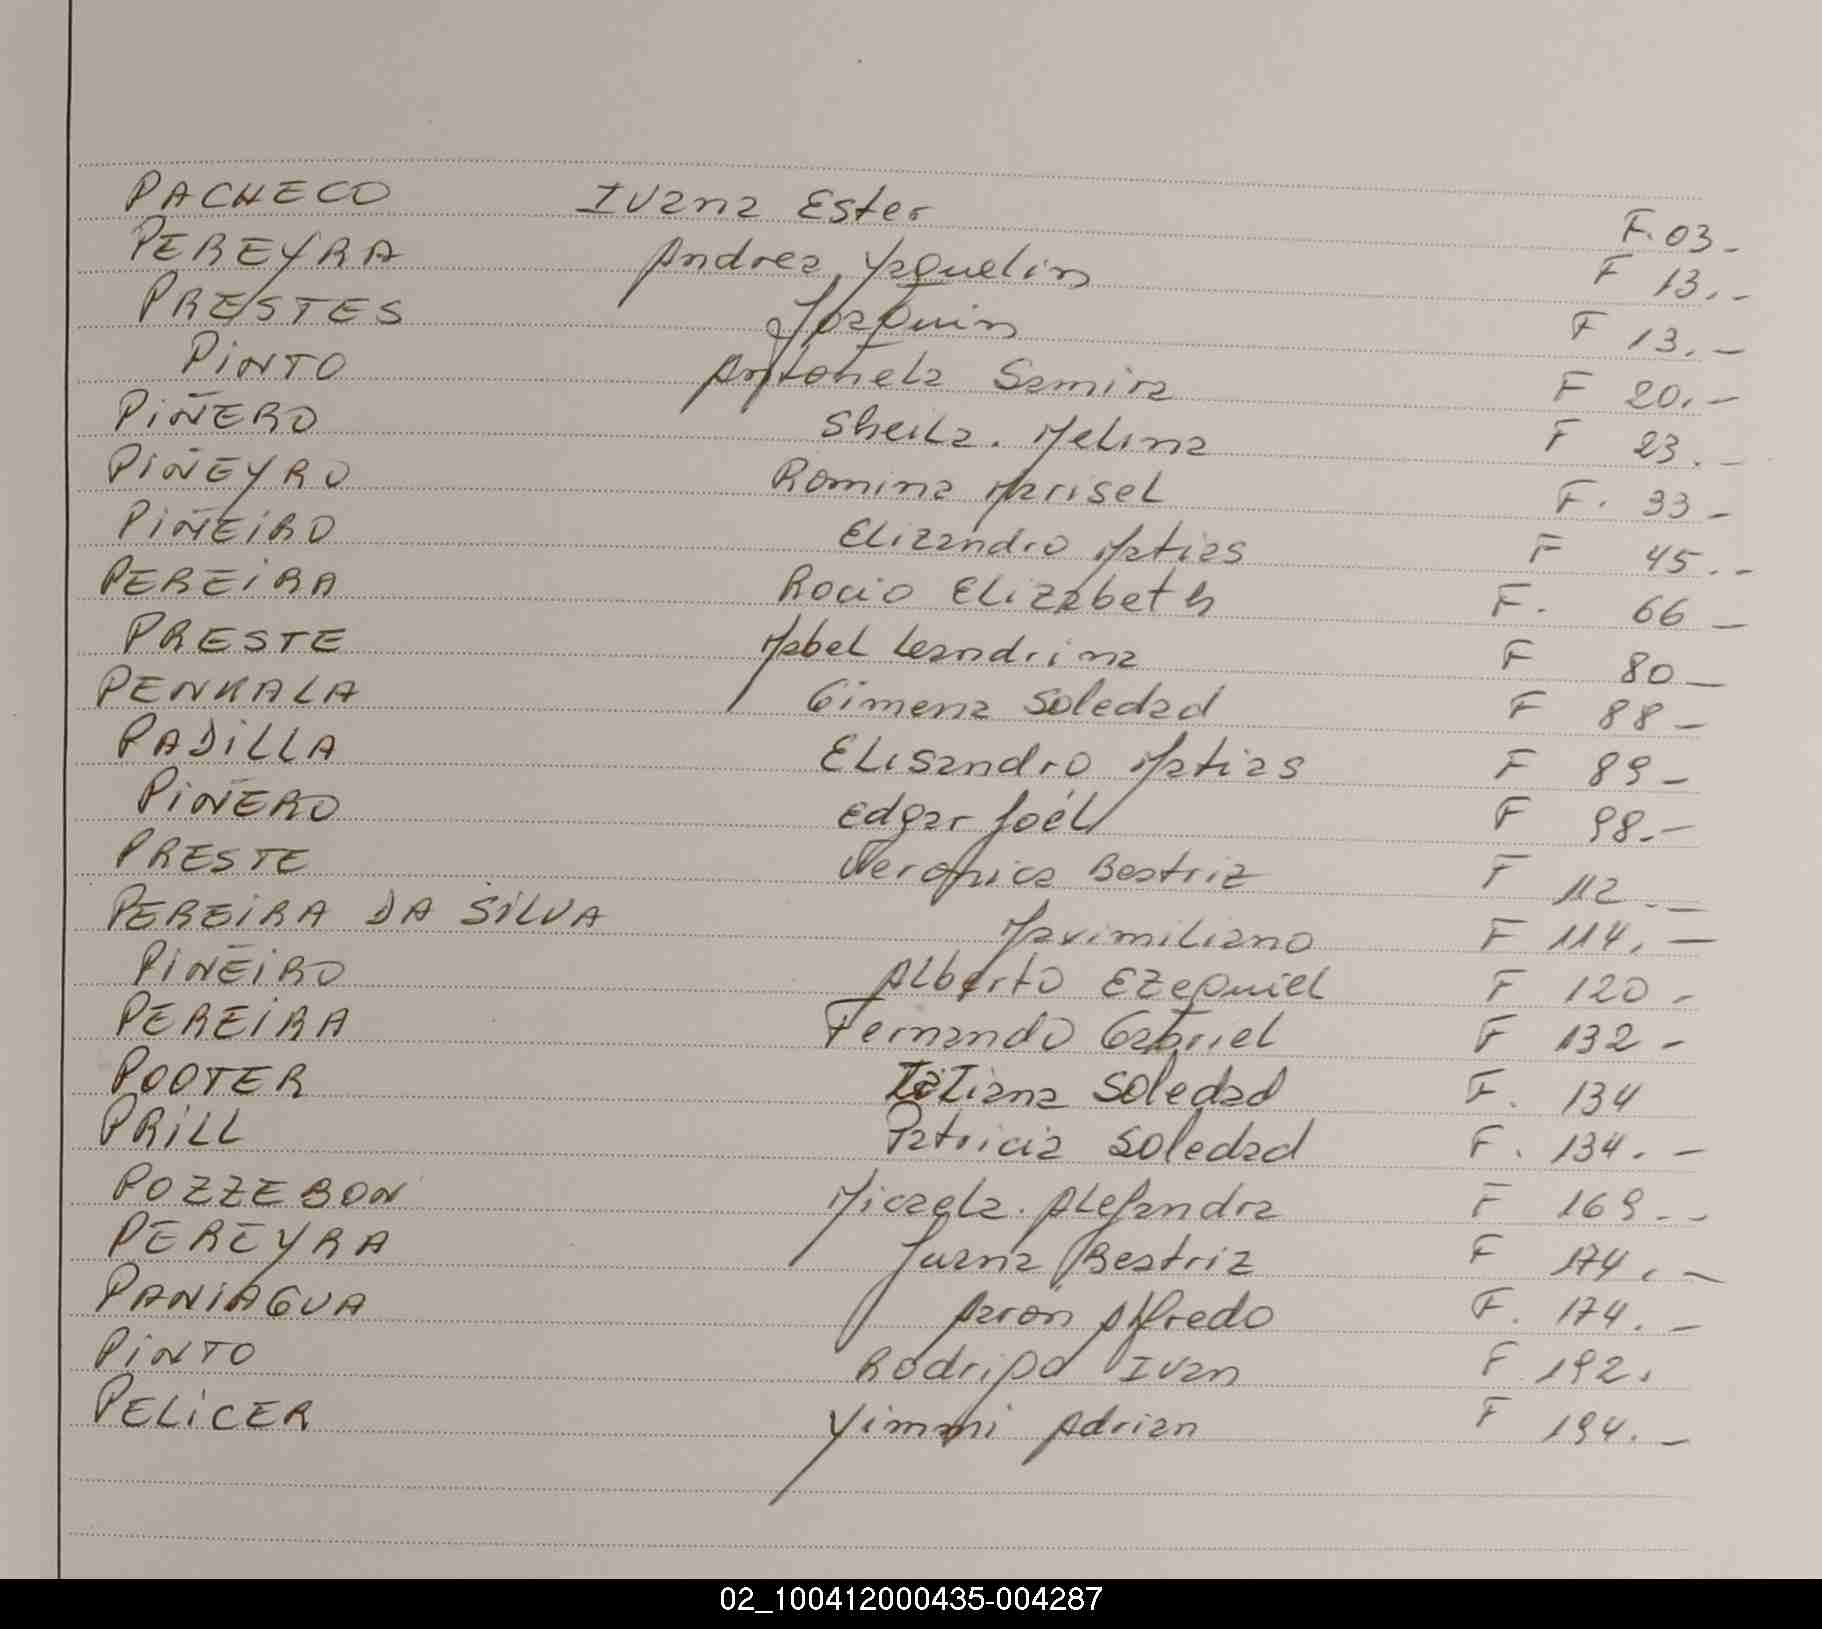 PACHECO Ivana Ester F. 03.-
PEREYRA Andrea Yaquelin F 13.-
PRESTES Joaquin F 13.-
PINTO Antonela Samira F 20.-
PIÑERO Sheila. Melina F 23.-
PIÑEYRO Romina Marisel F. 33-
PIÑEIRO Elizandro Matias F 45.-
PEREIRA Rocio Elizabeth F. 66-
PRESTE Mabel Leandrina F 80-
PENKALA Gimena Soledad F 88-
PADILLA Elisandro Matias F 89-
PIÑERO Edgar Joél F 98.-
PRESTE Veronica Beatriz F 112.-
PEREIRA DA SILVA Maximiliano F 114.-
PIÑEIRO Alberto Ezequiel F 120-
PEREIRA Fernando Gabriel F 132-
POOTER Tatiana Soledad F. 134
PRILL Patricia Soledad F. 134.-
POZZEBON Micaela. Alejandra F 169.-
PEREYRA Juana Beatriz F 174.-
PANIAGUA Aaron Alfredo F. 174.-
PINTO Rodrigo Ivan F 192.
PELICER Yimmi Adrian F 194.-
02_100412000435-004287